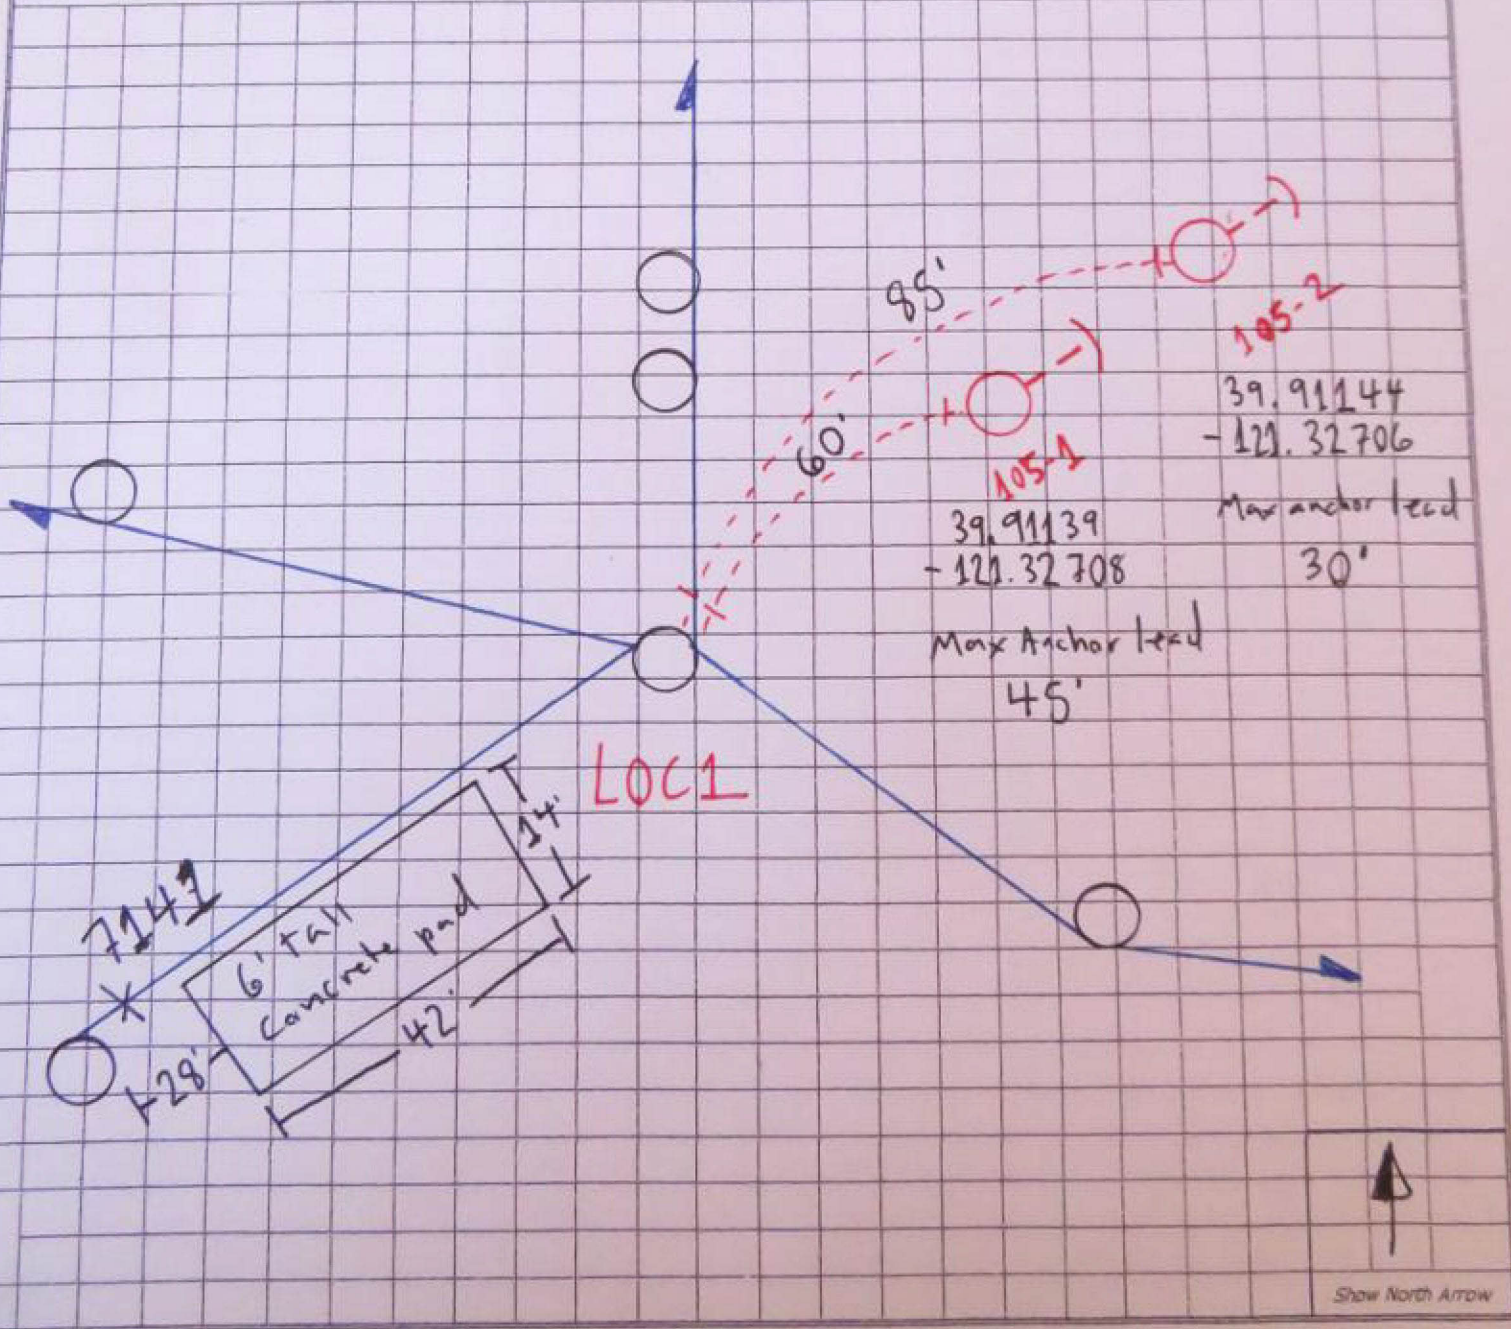 85'
60'
105-2
39.91144
-121.32706
Max anchor lead
30'
105-1
39.91139
-121.32708
Max Anchor lead
45'
LOC1
14'
7141
6' tall
concrete pad
42'
28'
Show North Arrow